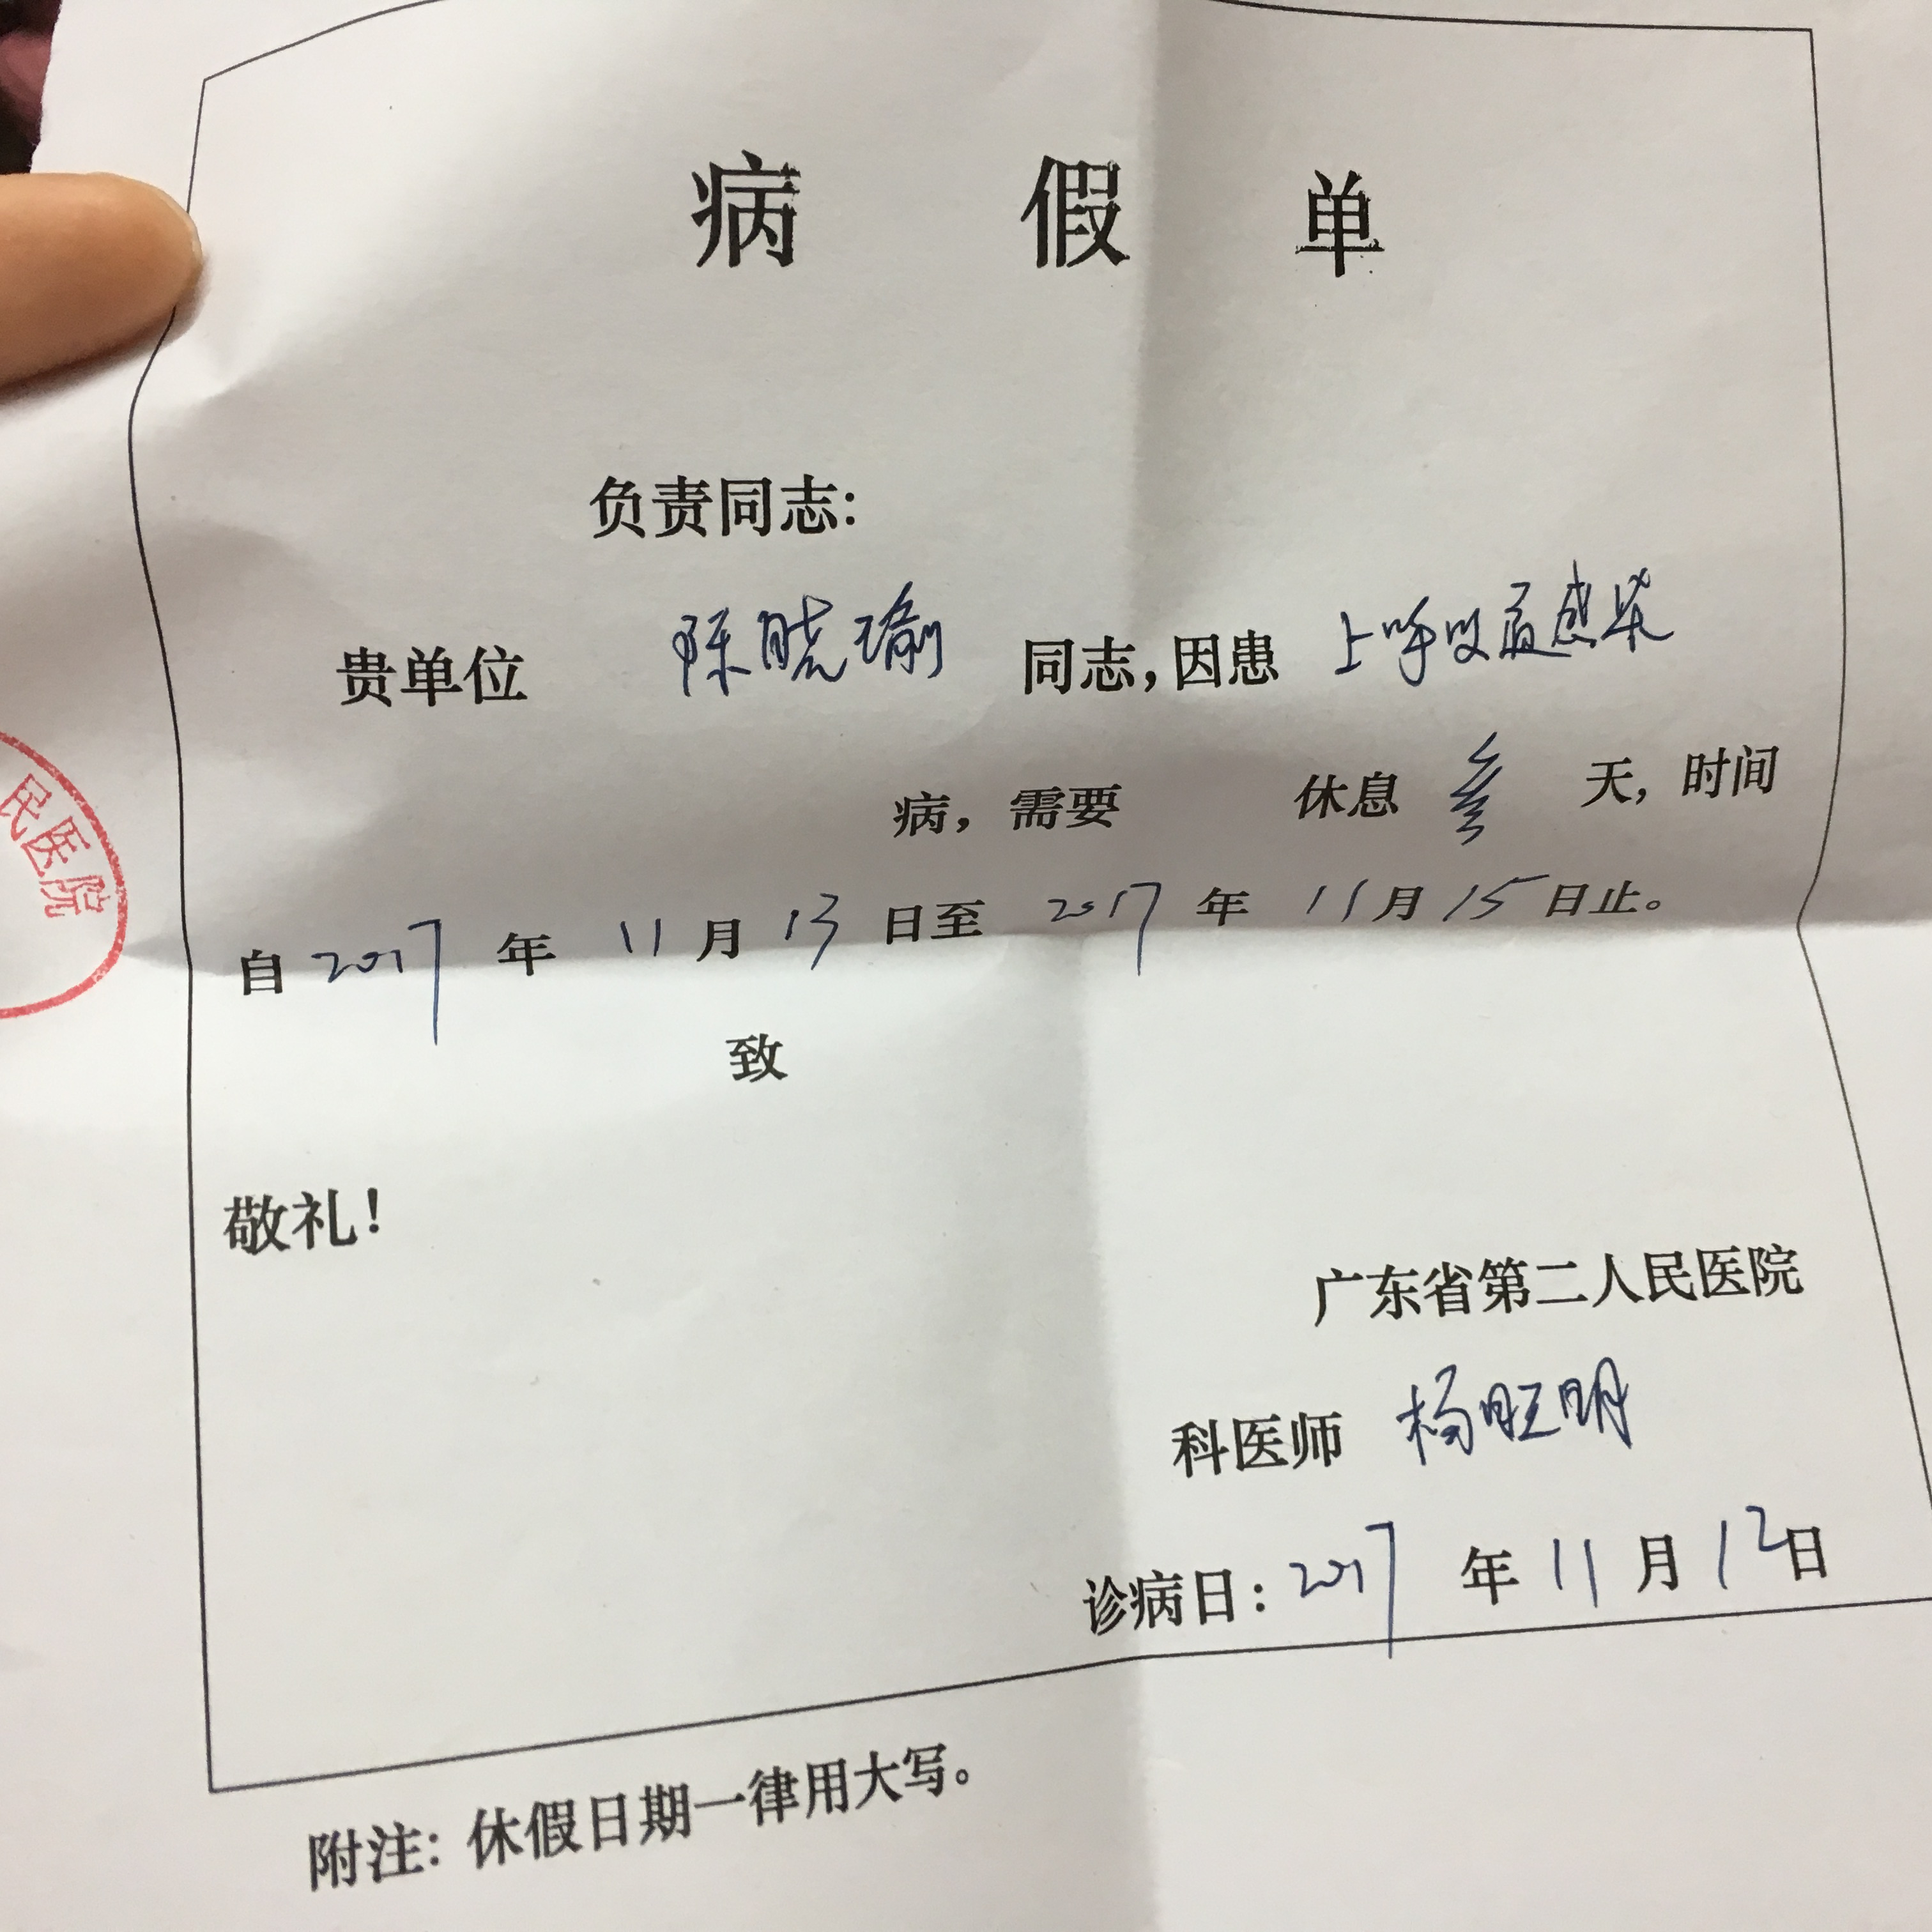 病假单
负责同志：
贵单位 陈晓瑜 同志，因患 上呼吸道感染
病，需要 休息 叁 天，时间
自 2017 年 11 月 13 日至 2017 年 11 月 15 日止。
致
敬礼！
民医院
广东省第二人民医院
科医师 杨旺明
诊病日：2017 年 11 月 12 日
附注：休假日期一律用大写。